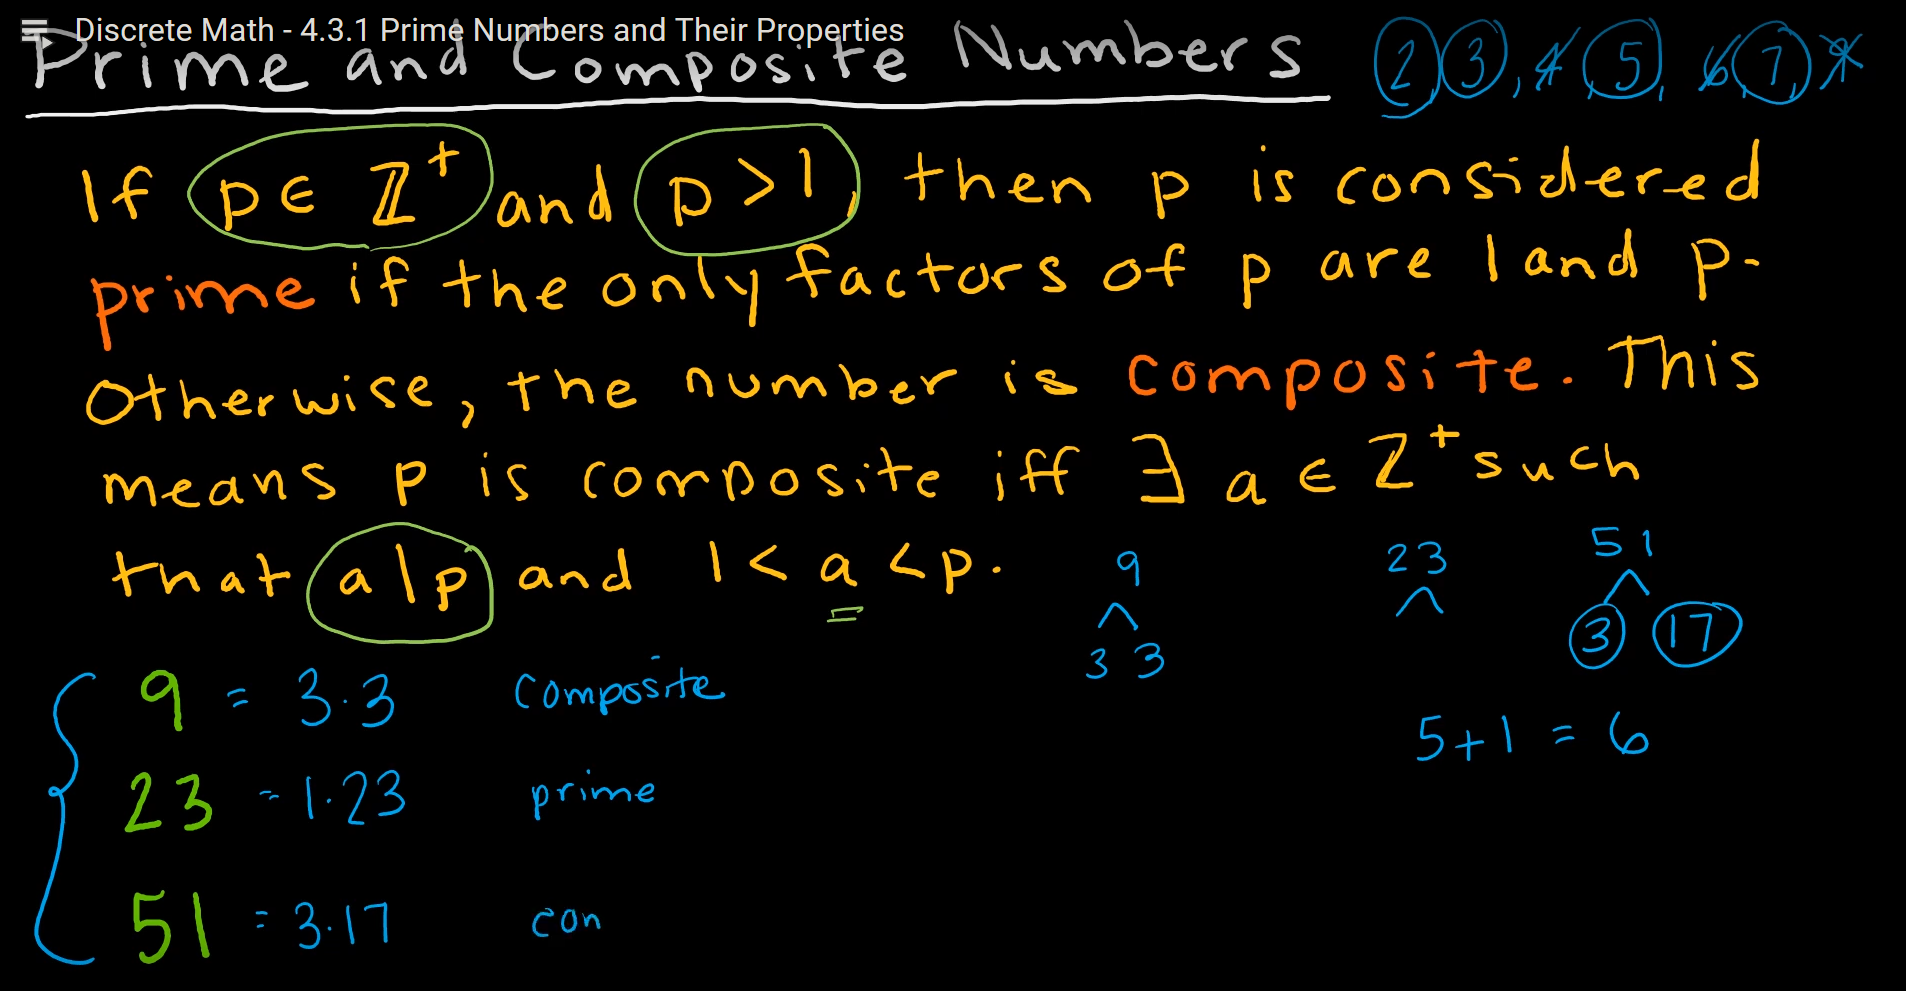 Discrete Math - 4.3.1 Prime Numbers and Their Properties
Prime and Composite Numbers 2, 3, 4, 5, 6, 7,
If p ∈ ℤ⁺ and p > 1, then p is considered
prime if the only factors of p are 1 and p.
Otherwise, the number is composite. This
means p is composite iff ∃ a ∈ ℤ⁺ such
that a|p and 1 < a < p.
9 23 51
3 3 3 17
9 = 3·3 composite
5+1 = 6
23 = 1·23 prime
51 = 3·17 con